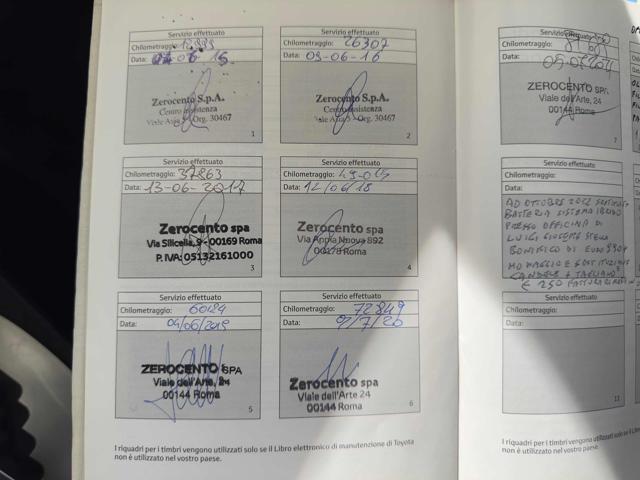 Servizio effettuato
Chilometraggio:
Data: 06-15
Zerocento S.p.A.
Centro Assistenza
Viale Asia 5 - Org. 30467
1
Servizio effettuato
Chilometraggio: 26307
Data: 09-06-16
Zerocento S.p.A.
Centro Assistenza
Viale Asia 5 - Org. 30467
2
Servizio effettuato
Chilometraggio: 37863
Data: 13-06-2017
Zerocento spa
Via Silicella, 9 - 00169 Roma
P. IVA: 05132161000
3
Servizio effettuato
Chilometraggio:
Data: 12/06/18
Zerocento spa
Via Appia Nuova 892
00178 Roma
4
Servizio effettuato
Chilometraggio: 60124
Data: 04/06/2019
ZEROCENTO SPA
Viale dell'Arte, 24
00144 Roma
5
Servizio effettuato
Chilometraggio: 72849
Data: 9/7/20
Zerocento spa
Viale dell'Arte 24
00144 Roma
6
Servizio effettuato
Chilometraggio:
Data:
ZEROCENTO SPA
Viale dell'Arte, 24
00144 Roma
7
Servizio effettuato
Chilometraggio:
Data:
AD OTTOBRE 2022
BATTERIA SISTEMA IBRIDO
PRESSO OFFICINA DI
LUIGI GIUSEPPE
BONIFICO DI EURO
E SOSTITUZIONE
CANDELE + TAGLIANDO
€ 250 FATTURA
Servizio effettuato
Chilometraggio:
Data:
11
I riquadri per i timbri vengono utilizzati solo se il Libro elettronico di manutenzione di Toyota
non è utilizzato nel vostro paese.
I riquadri per i timbri vengono utilizzati solo se il
non è utilizzato nel vostro paese.